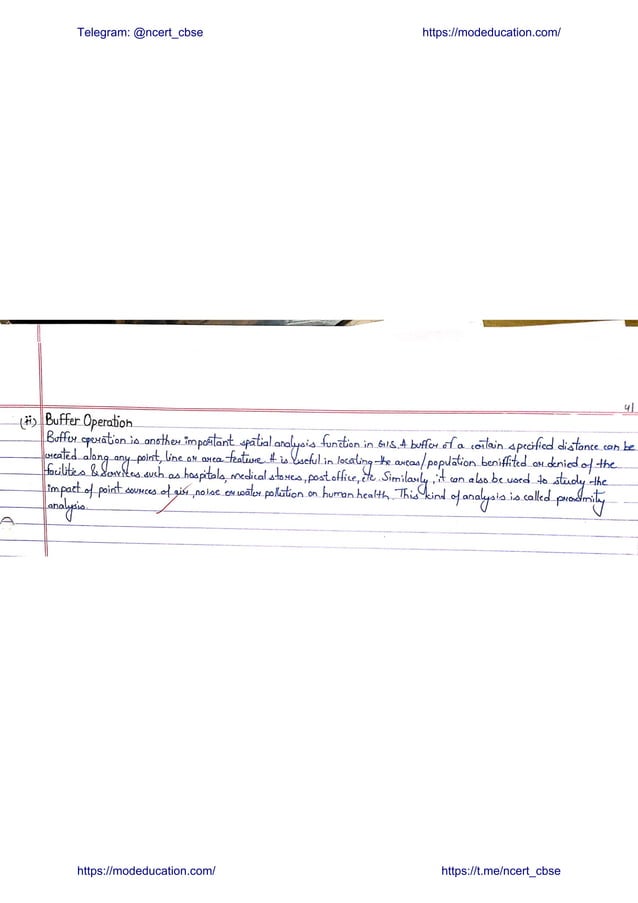 Telegram: @ncert_cbse https://modeducation.com/
41
(ii) Buffer Operation
Buffer operation is another important spatial analysis function in GIS. A buffer of a certain specified distance can be
created along any point, line or area feature. It is useful in locating the areas/population beniffited or denied of the
facilities & services such as hospitals, medical stores, post office, etc. Similarly, it can also be used to study the
impact of point sources of air, noise or water pollution on human health. This kind of analysis is called proximity
analysis.
https://modeducation.com/ https://t.me/ncert_cbse